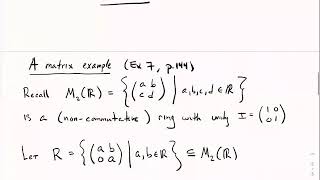 A matrix example (Ex 7, p.144)
Recall M₂(ℝ) = { (a b c d) | a,b,c,d ∈ ℝ }
is a (non-commutative) ring with unity I = (1 0 0 1)
Let R = { (a b 0 a) | a,b ∈ ℝ } ⊆ M₂(ℝ)